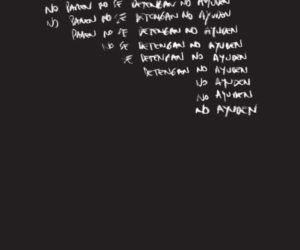 NO PAREN NO SE DETENGAN NO AYUDEN
NO PAREN NO SE DETENGAN NO AYUDEN
PAREN NO SE DETENGAN NO AYUDEN
NO SE DETENGAN NO AYUDEN
SE DETENGAN NO AYUDEN
DETENGAN NO AYUDEN
NO AYUDEN
NO AYUDEN
NO AYUDEN